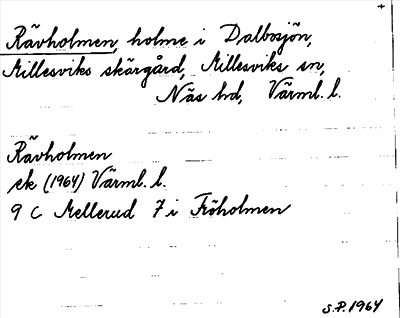 Rävholmen, holme i Dalbosjön,
Millesviks skärgård, Millesviks sn,
Näs hd, Värml. l.
Rävholmen
ek (1964) Värml. l.
9 C Mellerud 7 i Fröholmen
S.P. 1964